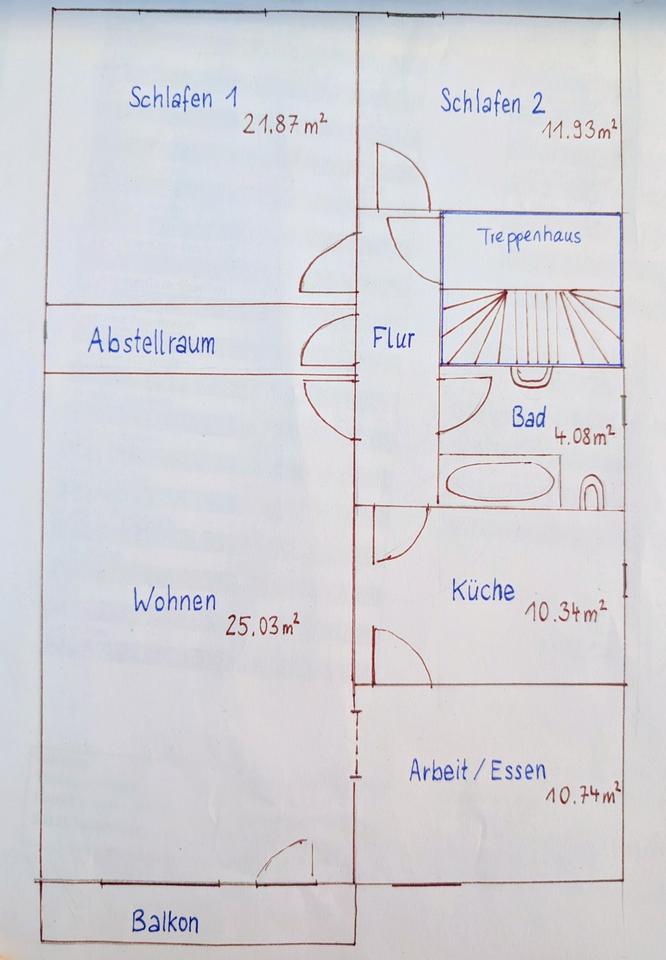 Schlafen 1
21.87 m²
Schlafen 2
11.93 m²
Treppenhaus
Abstellraum
Flur
Bad
4.08 m²
Wohnen
25.03 m²
Küche
10.34 m²
Arbeit / Essen
10.74 m²
Balkon